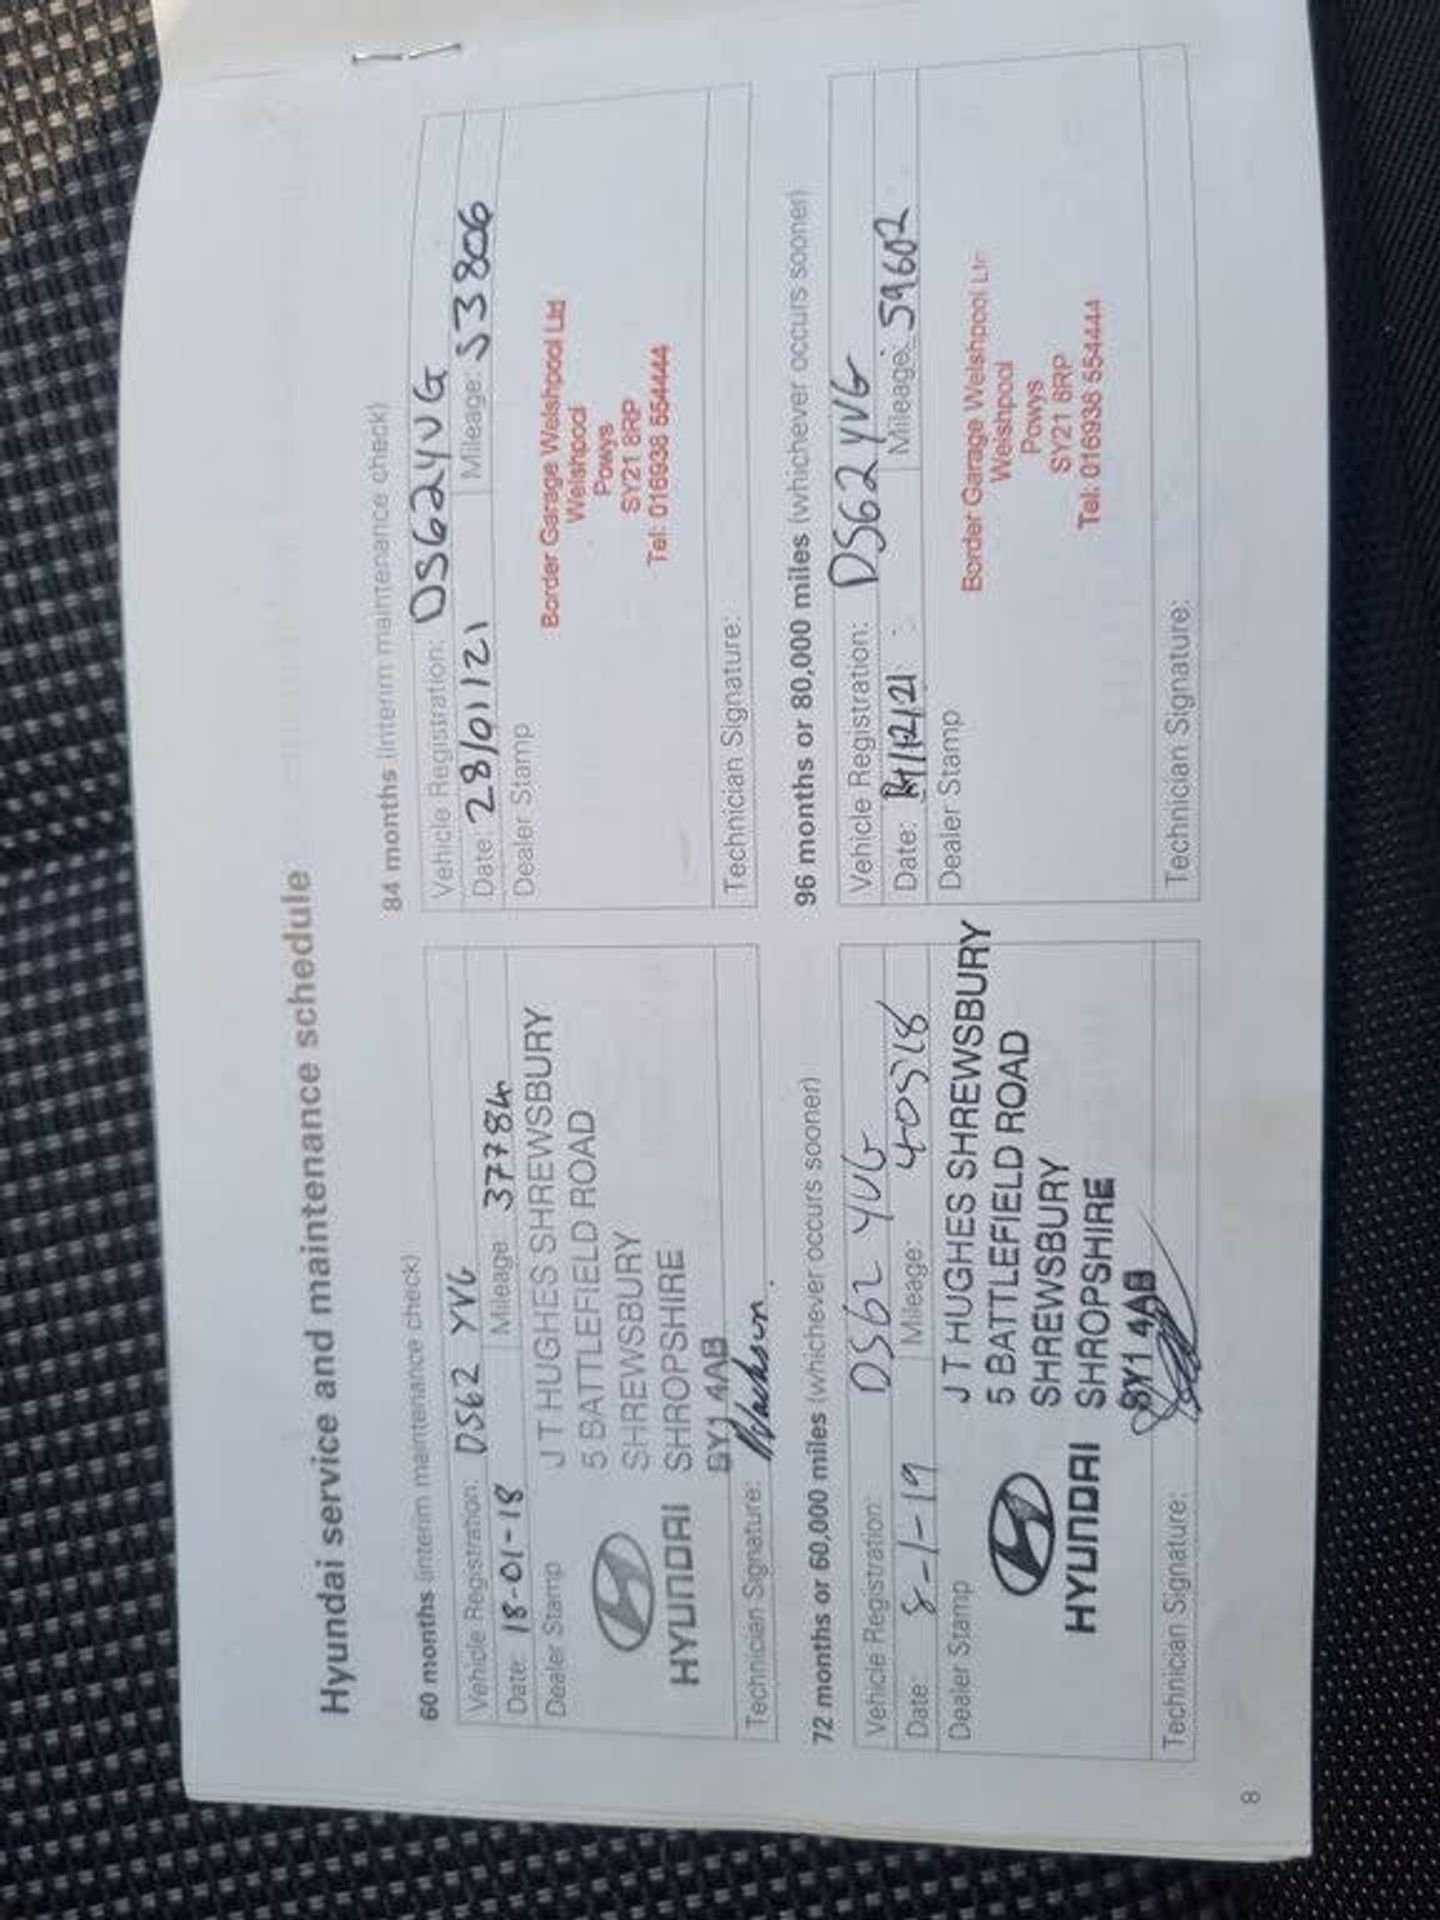 Hyundai service and maintenance schedule
60 months (interim maintenance check)
Vehicle Registration: DS62 YVG
Date: 18-01-18 Mileage: 37784
Dealer Stamp
J T HUGHES SHREWSBURY
5 BATTLEFIELD ROAD
SHREWSBURY
SHROPSHIRE
SY1 4AB
HYUNDAI
Technician Signature:
72 months or 60,000 miles (whichever occurs sooner)
Vehicle Registration: DS62 YVG
Date: 8-1-19 Mileage: 40518
Dealer Stamp
J T HUGHES SHREWSBURY
5 BATTLEFIELD ROAD
SHREWSBURY
SHROPSHIRE
SY1 4AB
HYUNDAI
Technician Signature:
84 months (interim maintenance check)
Vehicle Registration: DS62YVG
Date: 28/01/21 Mileage: 53806
Dealer Stamp
Border Garage Welshpool Ltd
Welshpool
Powys
SY21 8RP
Tel: 016938 554444
Technician Signature:
96 months or 80,000 miles (whichever occurs sooner)
Vehicle Registration: DS62YVG
Date: Mileage: 59602
Dealer Stamp
Border Garage Welshpool Ltd
Welshpool
Powys
SY21 8RP
Tel: 016938 554444
Technician Signature:
8